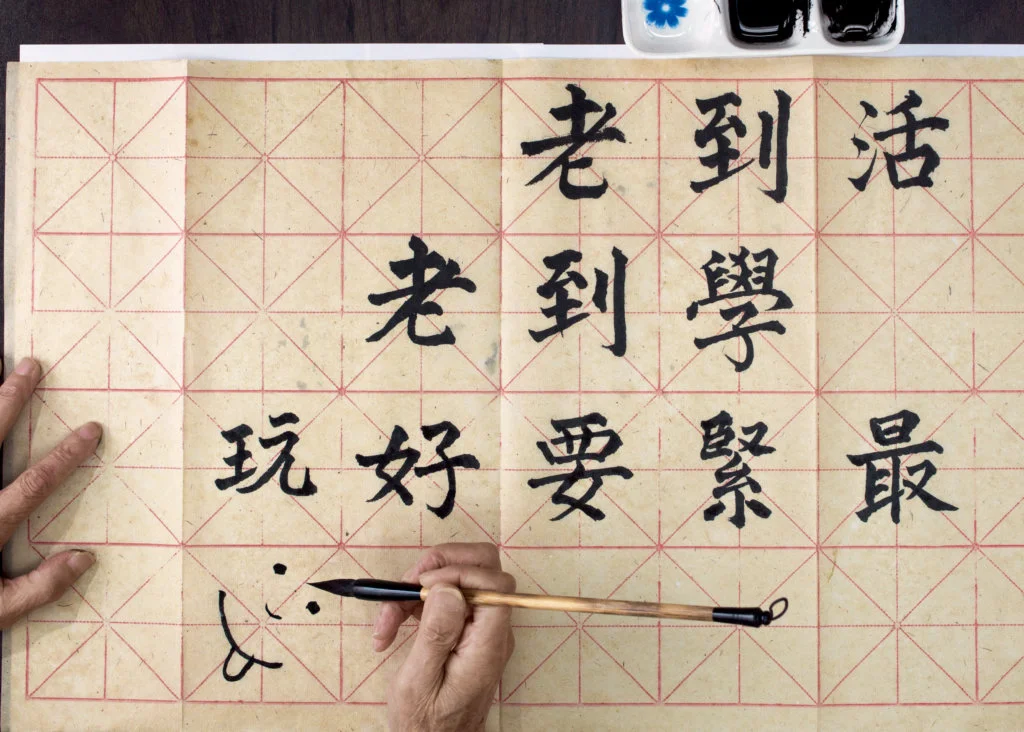 活到老
學到老
最緊要好玩